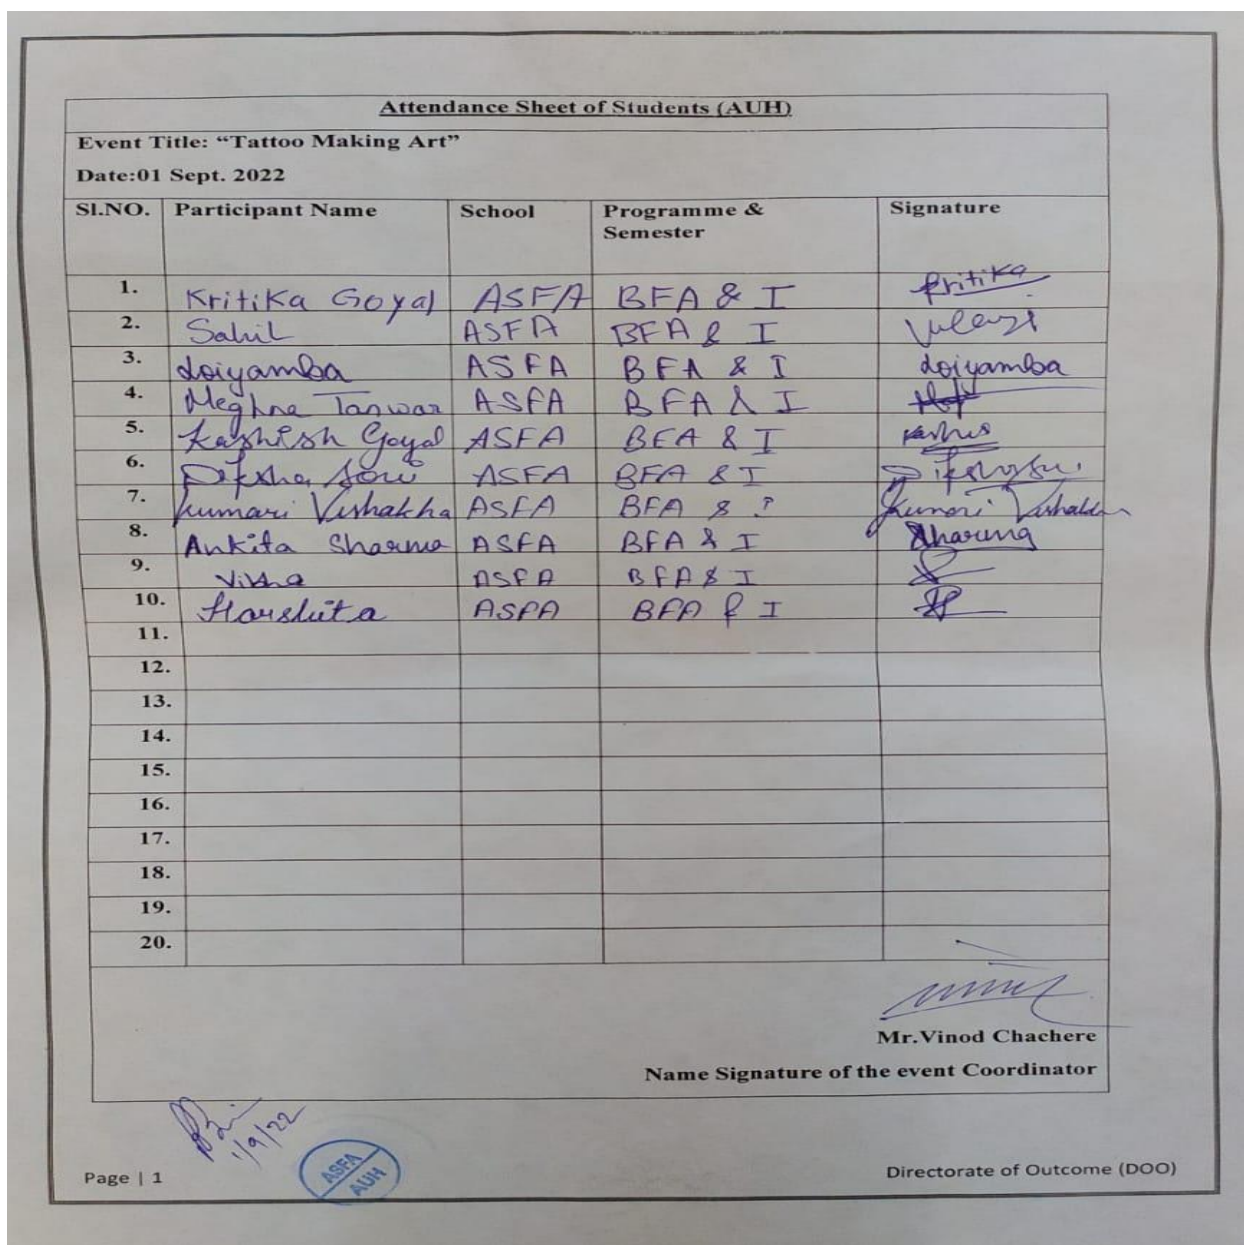 Attendance Sheet of Students (AUH)
Event Title: “Tattoo Making Art”
Date:01 Sept. 2022
Sl.NO. Participant Name School Programme & Semester Signature
1. Kritika Goyal ASFA BFA & I Kritika
2. Sahil ASFA BFA & I
3. Loiyamba ASFA BFA & I Loiyamba
4. Meghna Tanwar ASFA BFA & I
5. Kashish Goyal ASFA BFA & I
6. Diksha ASFA BFA & I
7. Kumari Vishakha ASFA BFA & Kumari Vishakha
8. Ankita Sharma ASFA BFA & I Sharma
9. ASFA BFA & I
10. Harshita ASFA BFA & I
11.
12.
13.
14.
15.
16.
17.
18.
19.
20.
Mr.Vinod Chachere
Name Signature of the event Coordinator
1/9/22
ASFA
AUH
Page | 1 Directorate of Outcome (DOO)